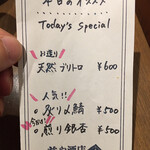 本日のオススメ
Today's Special
お造り
天然ブリトロ ¥600
人気!!
炙り〆鯖 ¥500
煎り銀杏 ¥500